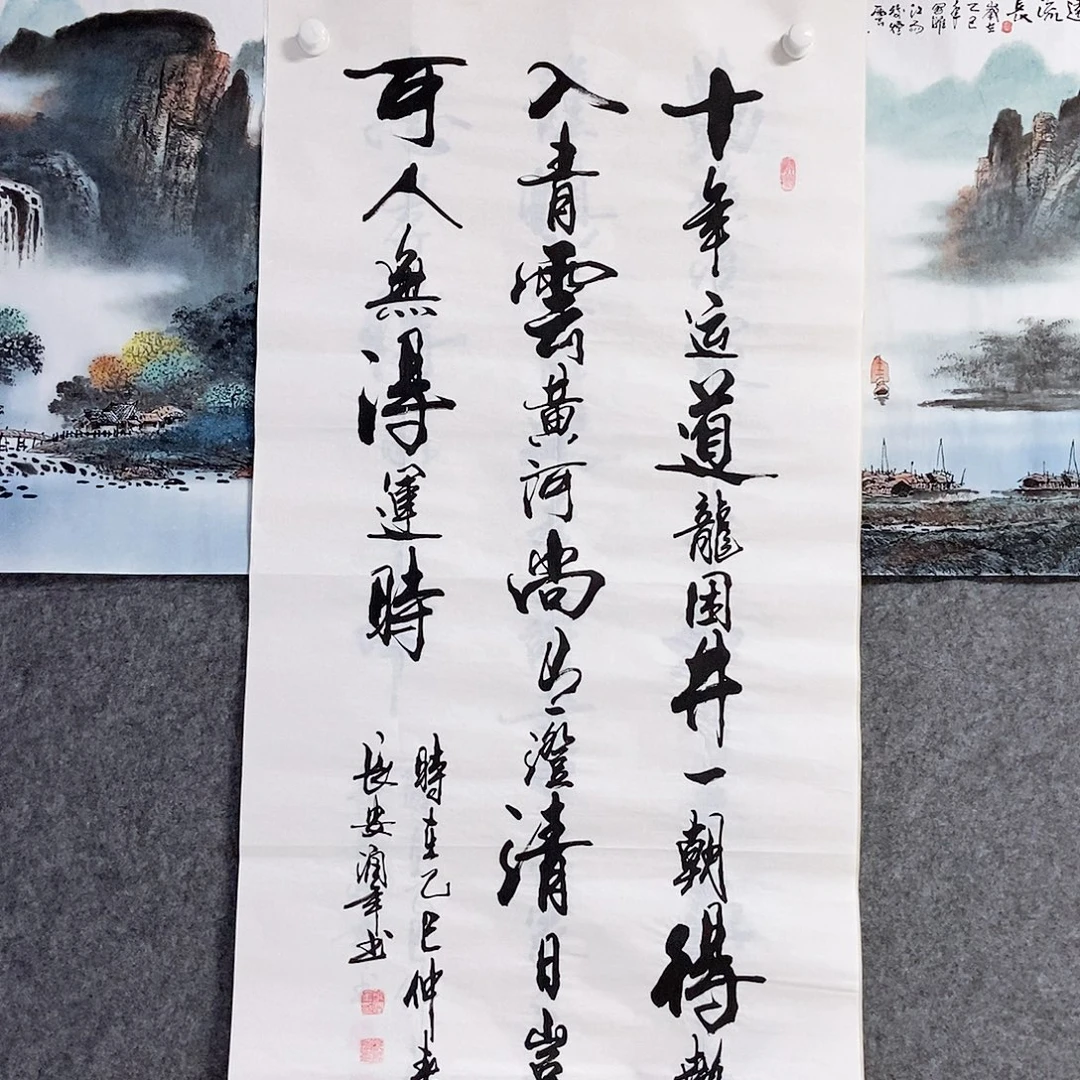 十年运道龍困井一朝得勢
入青雲黃河尚有澄清日豈
可人無得運時
時在乙巳仲春
長安潤年书
遠流長
歲在
乙巳
年